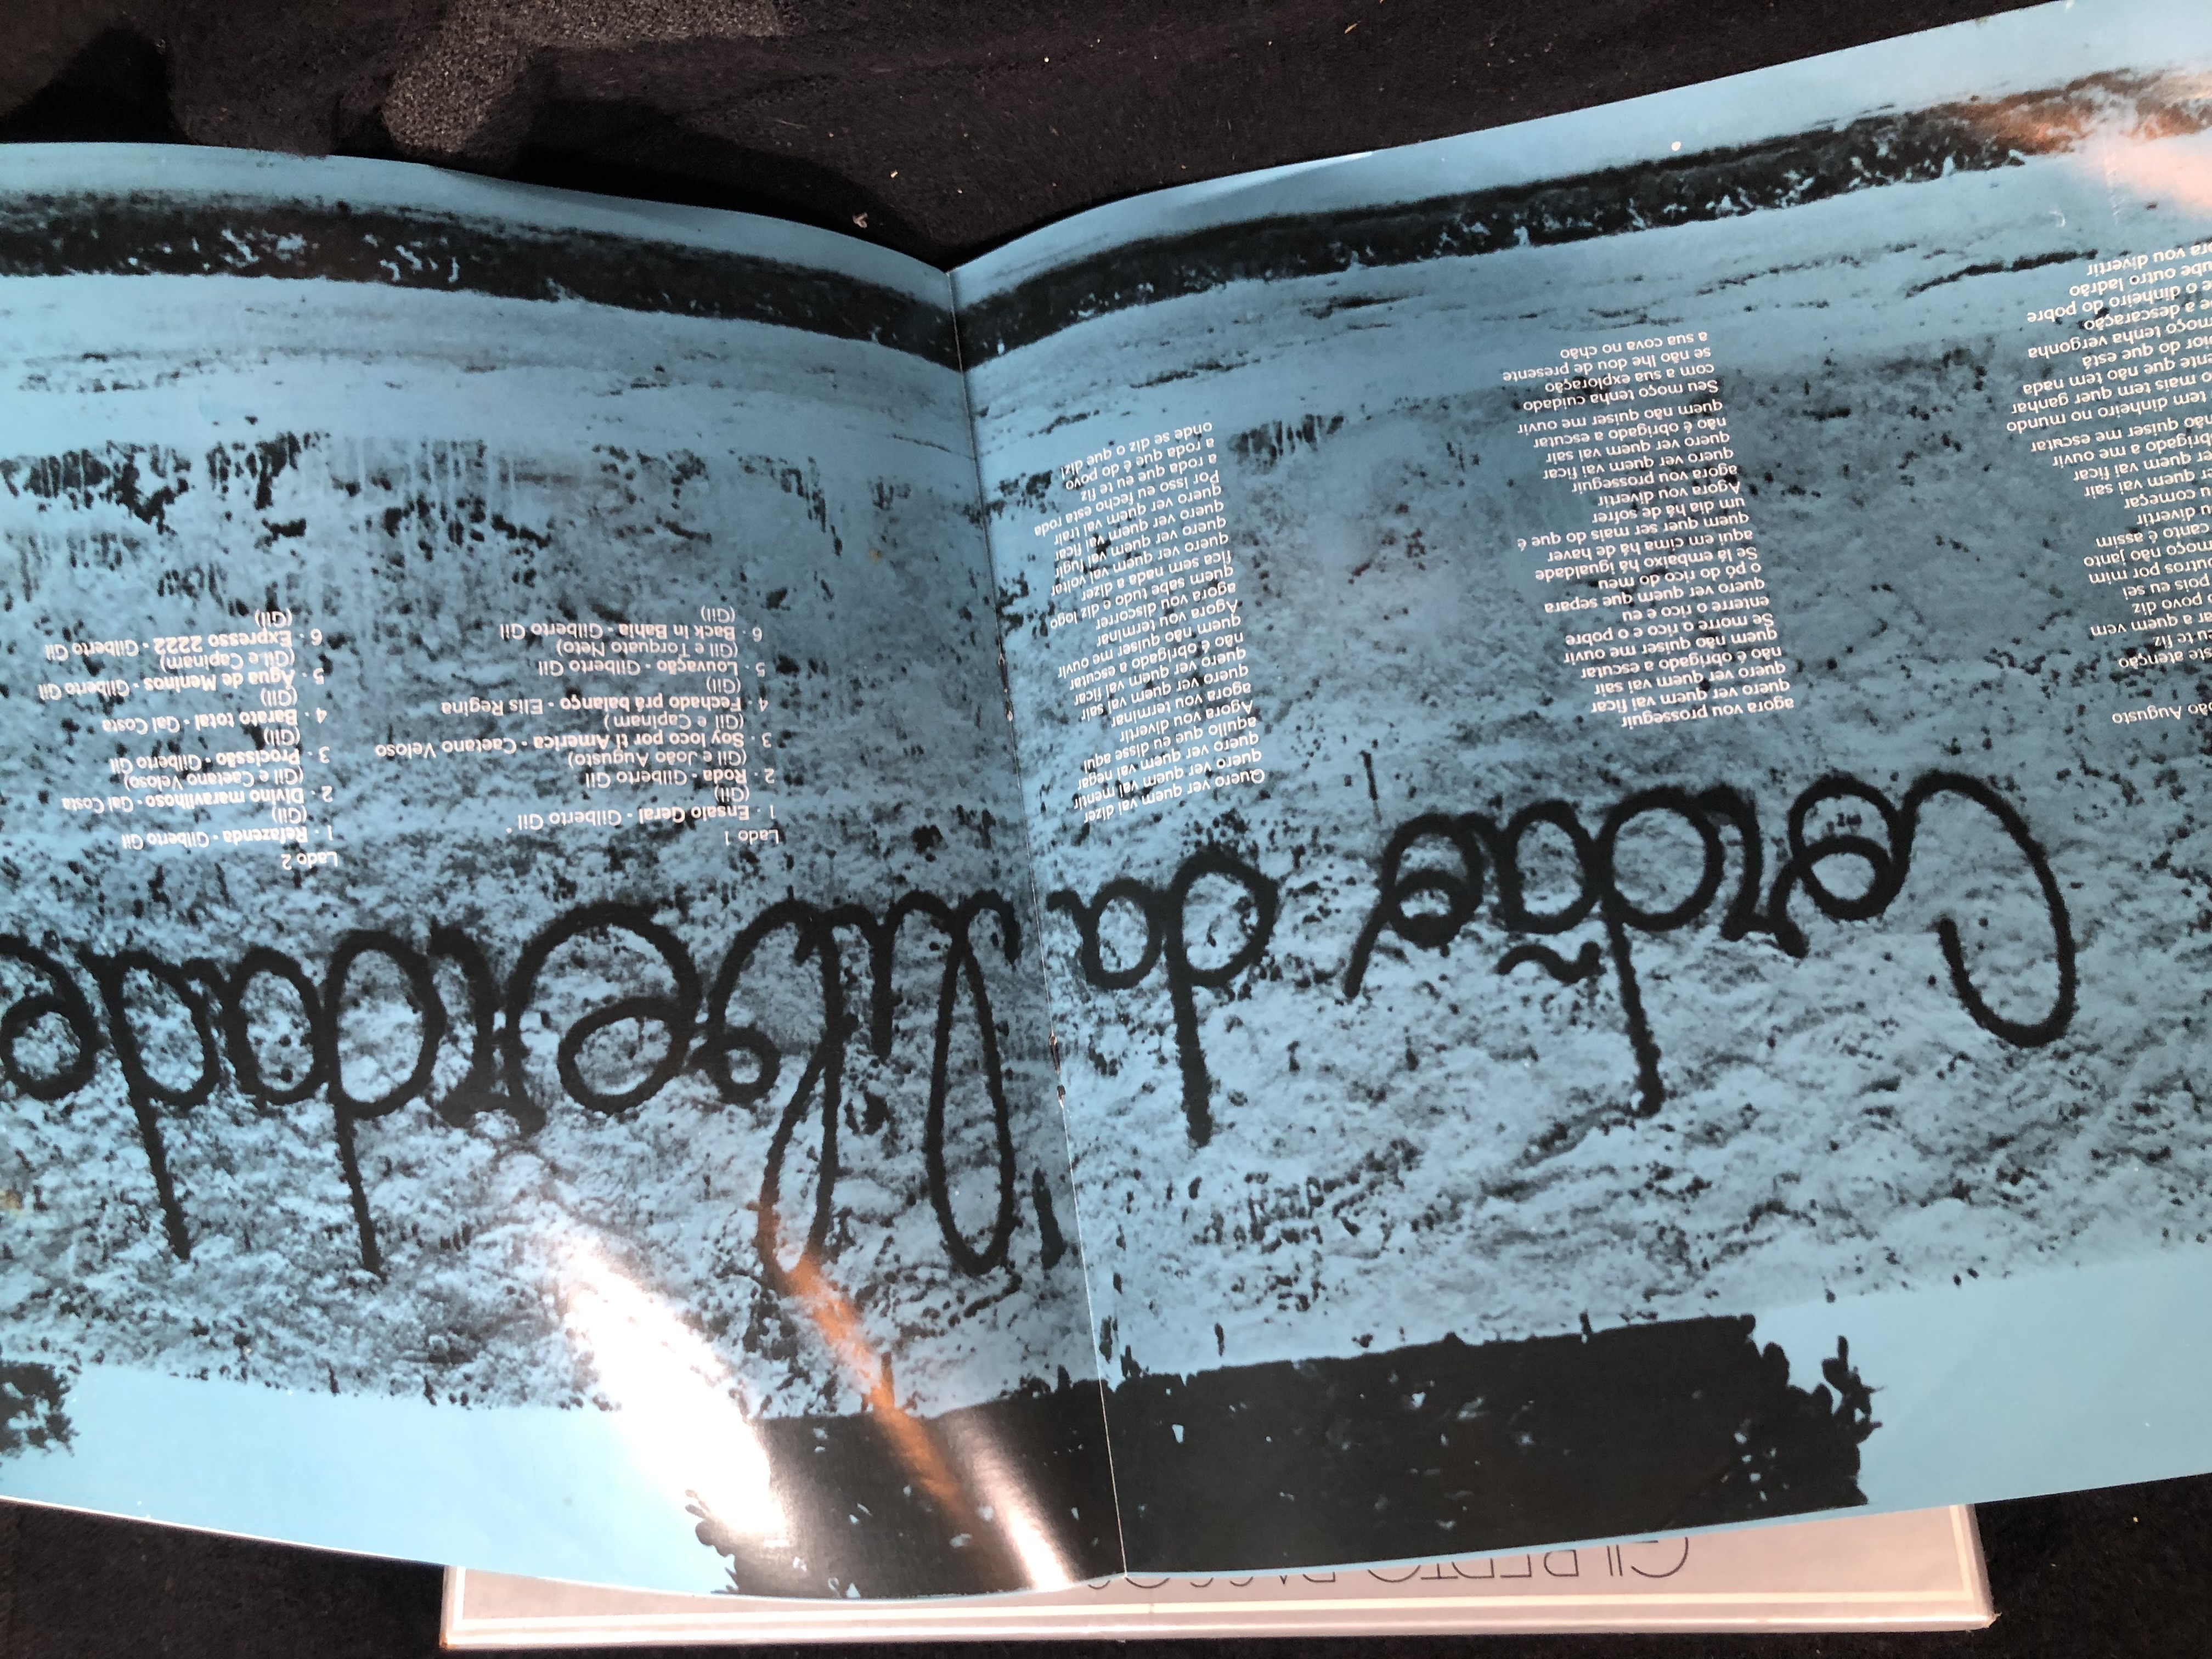 Cordão da liberdade
oão Augusto
ste atenção
eu te fiz
ar a quem vem
o povo diz
pois eu sei
outros por mim
moço não janto
canto é assim
u divertir
u começar
r quem vai sair
er quem vai ficar
brigado a me ouvir
não quiser me escutar
tem dinheiro no mundo
o mais tem quer ganhar
ente que não tem nada
pior do que está
moço tenha vergonha
e a descaração
e o dinheiro do pobre
ube outro ladrão
ora vou divertir
agora vou prosseguir
quero ver quem vai ficar
quero ver quem vai sair
não é obrigado a escutar
quem não quiser me ouvir
Se morre a rico e o pobre
enterre o rico e eu
quero ver quem que separa
o pó do rico do meu
Se lá embaixo há igualdade
aqui em cima há de haver
quem quer ser mais do que é
um dia há de sofrer
Agora vou divertir
agora vou prosseguir
quero ver quem vai ficar
quero ver quem vai sair
não é obrigado a escutar
quem não quiser me ouvir
Seu moço tenha cuidado
com a sua exploração
se não lhe dou de presente
a sua cova no chão
Quero ver quem vai dizer
quero ver quem vai mentir
quero ver quem vai negar
aquilo que eu disse aqui
Agora vou divertir
agora vou terminar
quero ver quem vai sair
quero ver quem vai ficar
não é obrigado a escutar
quem não quiser me ouvir
Agora vou terminar
agora vou discorrer
quem sabe tudo e diz logo
fica sem nada a dizer
quero ver quem vai voltar
quero ver quem vai fugir
quero ver quem vai ficar
quero ver quem vai trair
Por isso eu fecho esta roda
a roda que eu te fiz
a roda que é do povo
onde se diz o que diz!
Lado 1
1 - Ensaio Geral - Gilberto Gil
(Gil)
2 - Roda - Gilberto Gil
(Gil e João Augusto)
3 - Soy loco por ti America - Caetano Veloso
(Gil e Capinam)
4 - Fechado prá balanço - Elis Regina
(Gil)
5 - Louvação - Gilberto Gil
(Gil e Torquato Neto)
6 - Back In Bahia - Gilberto Gil
(Gil)
Lado 2
1 - Refazenda - Gilberto Gil
(Gil)
2 - Divino maravilhoso - Gal Costa
(Gil e Caetano Veloso)
3 - Procissão - Gilberto Gil
(Gil)
4 - Barato total - Gal Costa
(Gil)
5 - Água de Meninos - Gilberto Gil
(Gil e Capinam)
6 - Expresso 2222 - Gilberto Gil
(Gil)
GILBERTO PASSOS